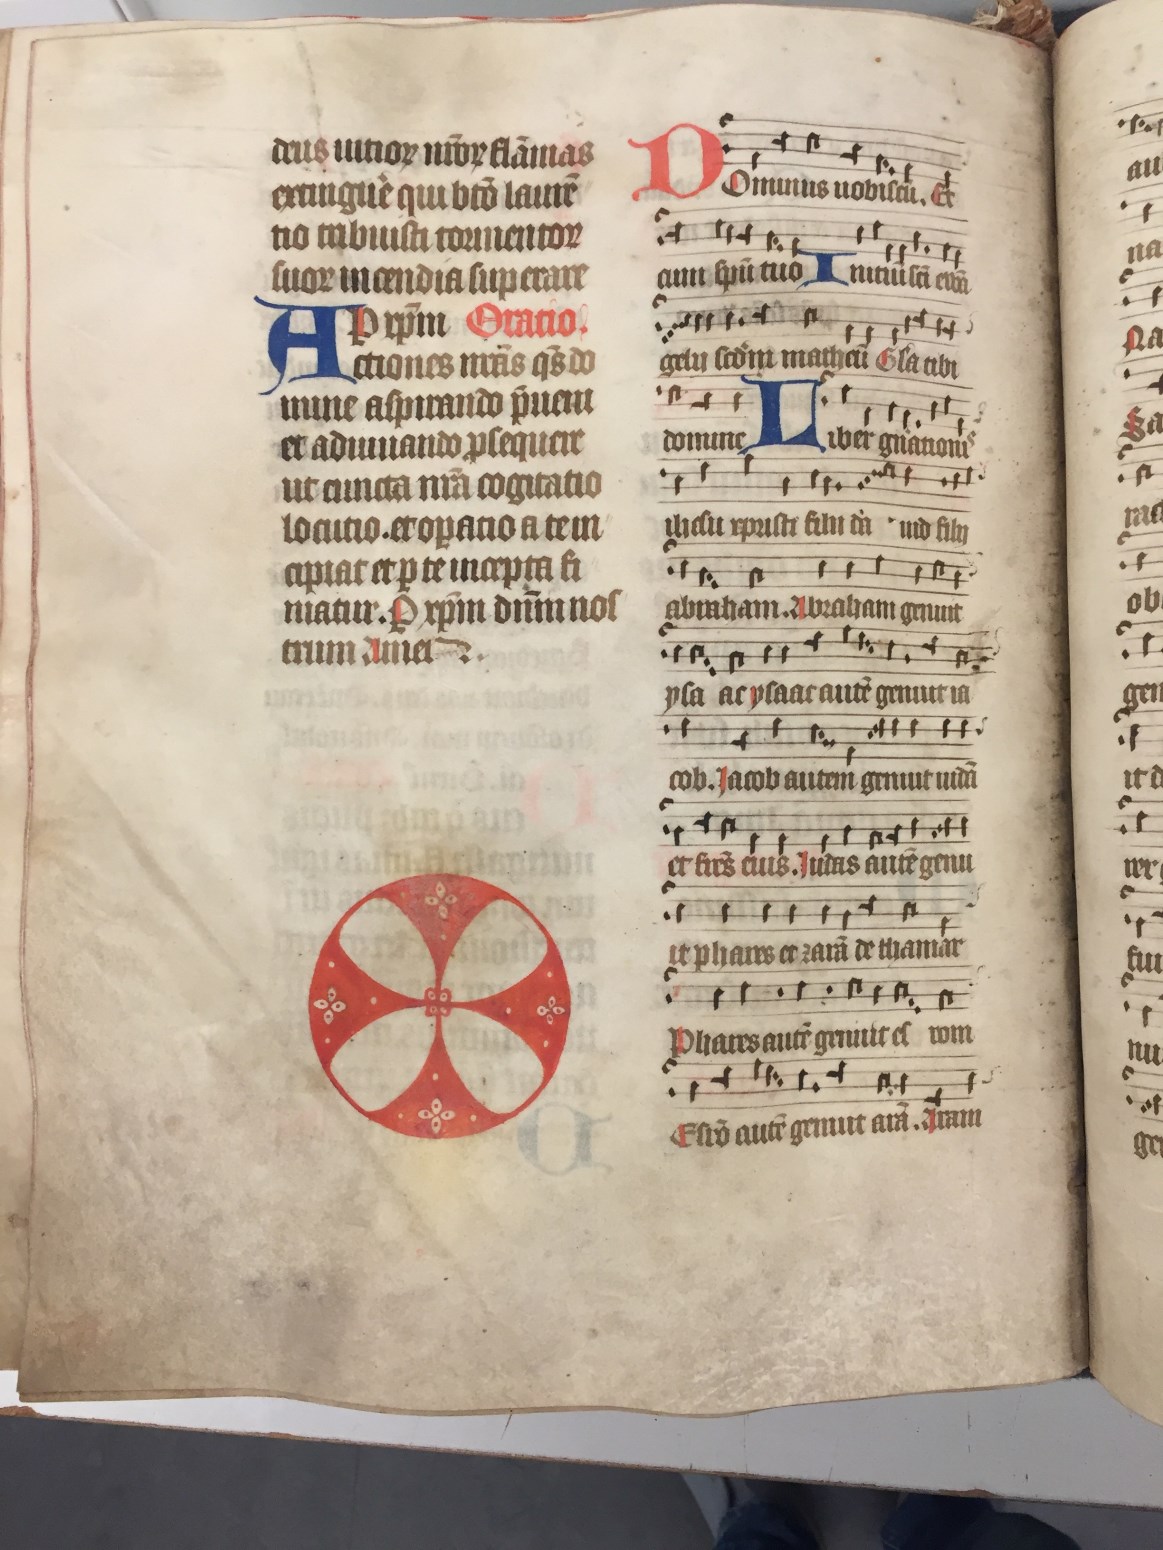 deus uitioꝝ nr̄oꝝ flāmas
extinguē̄ qui btō laurē
tio tribuisti tormentoꝝ
suoꝝ incendia superare
P xp̄m Oratio.
Actiones nrās q̄s do
mine aspirando p̄ueni
et adiuuando ꝓsequere
ut cuncta nrā cogitatio
locutio. et oꝑatio a te in
cipiat et ꝑ te incepta fi
niatur. P xp̄m dn̄m nos
trum Amen
Dominus uobiscū. Et
cum spū tuo Initiū sci ewā
gelii scd̄m matheū Gl'a tibi
domine Liber gn̄ationis
ihesu xpristi filii da uid filii
abraham. Abraham genuit
ysa ac ysaac autē genuit ia
cob. Jacob autem genuit iudā
et frēs eius. Judas autē genu
it phares et zarā de thamar
Phares autē genuit es rom
Esrō autē genuit arā. Aram